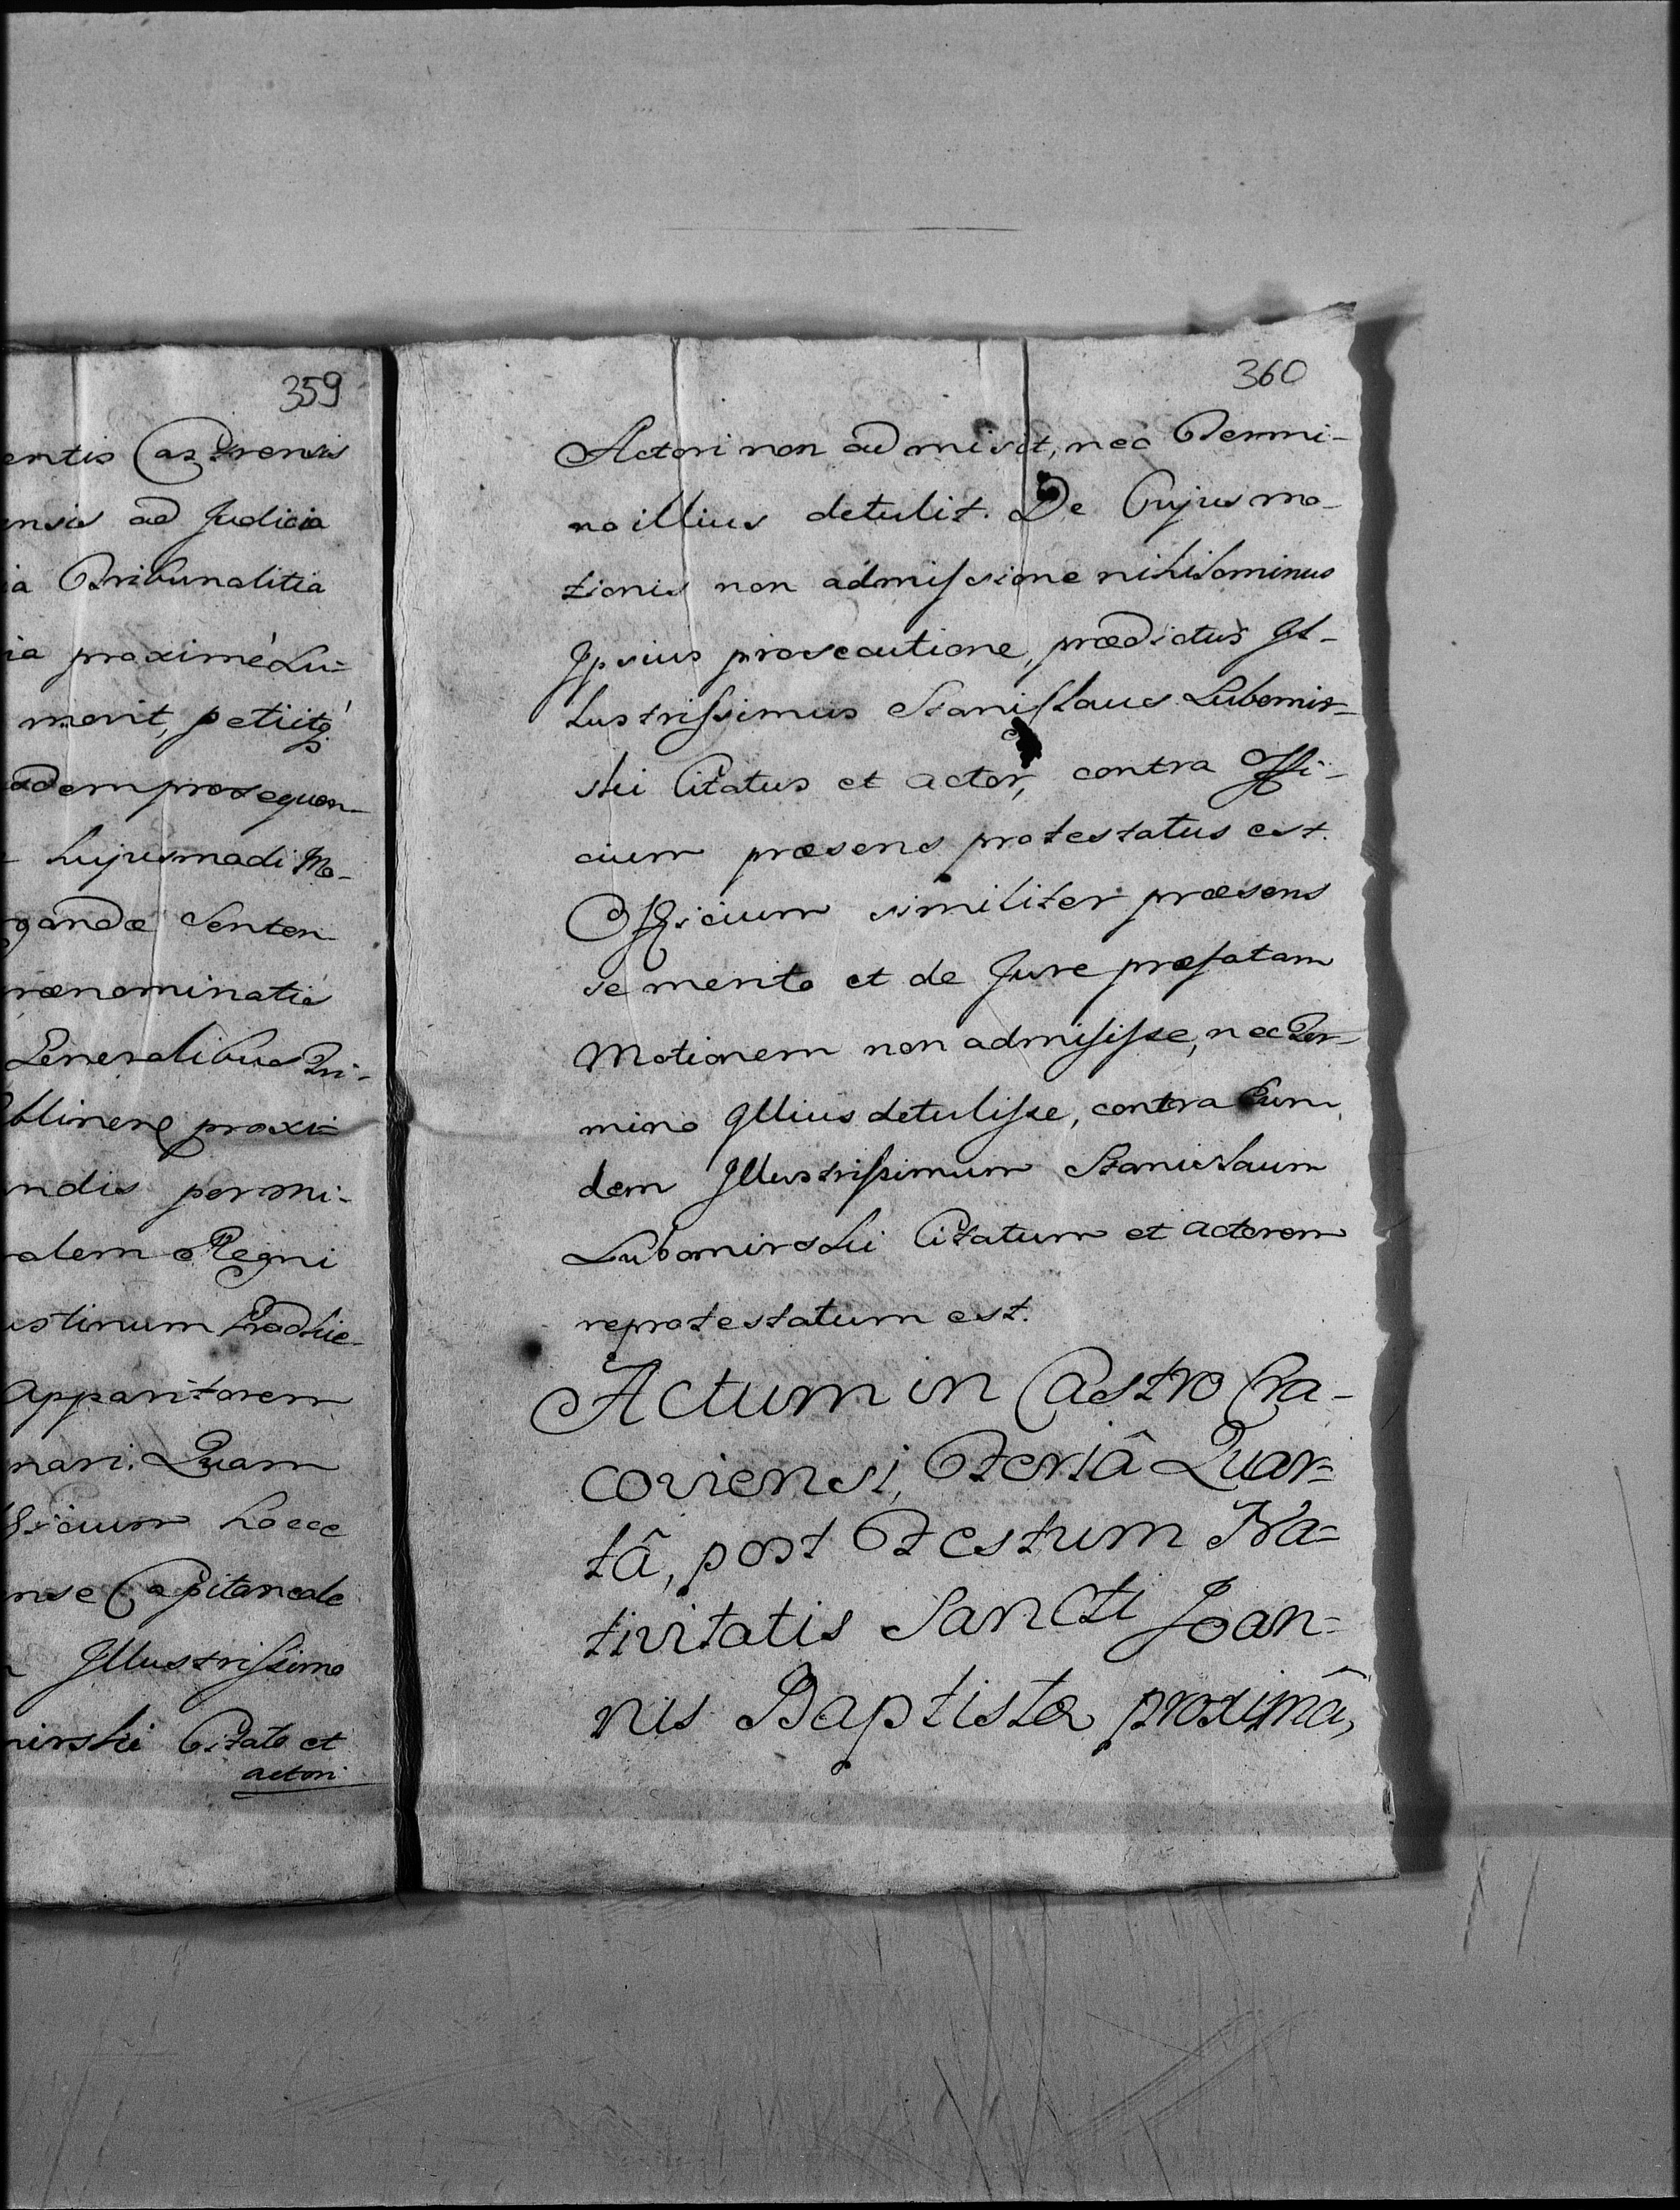 359
entis Castrensis
ensis ad Judicia
ia Tribunalitia
ia proximè Lu=
merit, petiitq́
adem prosequen-
hujusmodi Mo-
gandæ Senten
rænominatis
Generalibus Tri-
blinens proxi=
ndis permi-
ralem Regni
ustinum Prodhie-
Apparitorem
nari. Quam
fficium hocce
nse Capitaneale
Illustrissimo
mirski Citato et
actori
360
Actori non admisit, nec Termi-
no illius detulit. De Cujus mo-
tionis non admissione nihilominus
Ipsius prosecutione, prædictus Il-
lustrissimus Stanislaus Lubomir-
ski Citatus et actor, contra Offi-
cium præsens protestatus est.
Officium similiter præsens
se merito et de Jure præfatam
Motionem non admisisse, nec Ter-
mino Illius detulisse, contra Eun
dem Illustrissimum Stanislaum
Lubomirski Citatum et actorem
reprotestatum est.
Actum in Castro Cra-
coviensi, Feriâ Quar=
tâ, post Festum Na=
tivitatis Sancti Joan=
nis Baptistæ proximâ,